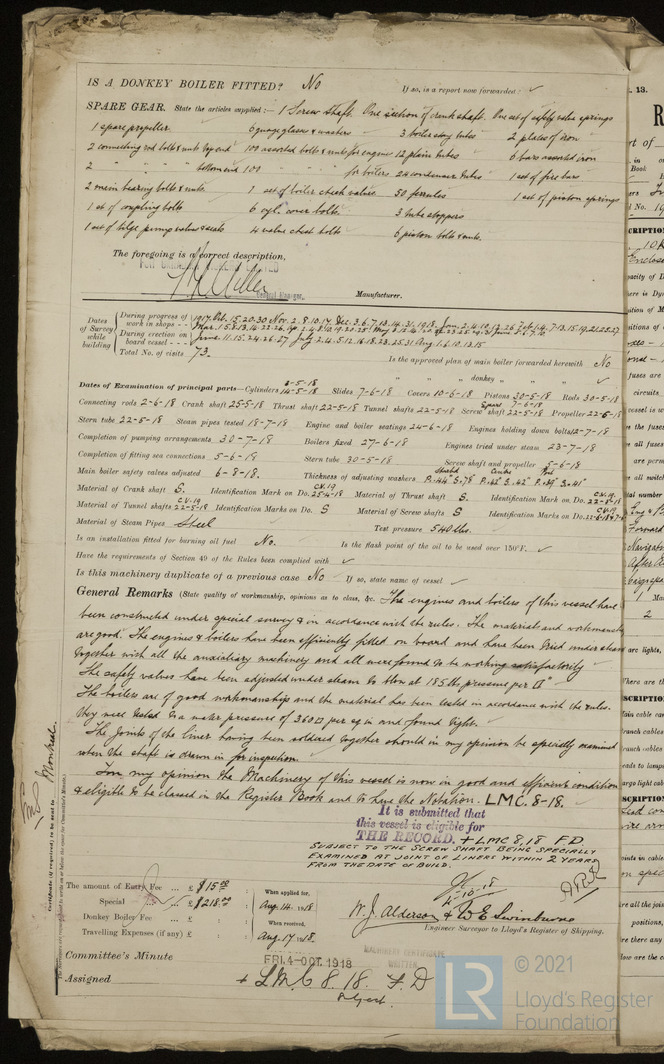 IS A DONKEY BOILER FITTED? No If so, is a report now forwarded :- ✓
SPARE GEAR. State the articles supplied :— 1 Screw shaft. One section of crank shaft. One set of safety valve springs
1 spare propeller 6 gauge glass & washers 3 boiler stay tubes 2 plates of iron
2 connecting rod bolts & nuts top end 100 assorted bolts & nuts for engine 12 plain tubes 6 bars assorted iron
2 " " " " bottom end 100 " " for boilers 24 condenser tubes 1 set of fire bars
2 main bearing bolts & nuts 1 set of boiler check valves 50 ferrules 1 set of piston springs
1 set of coupling bolts 6 cyl. cover bolts 3 tube stoppers
1 set of bilge pump valves & seats 4 valve chest bolts 6 piston bolts & nuts.
The foregoing is a correct description,
General Manager. Manufacturer.
Dates of Survey while building
During progress of work in shops - - 1917. Oct. 15.20.30 Nov. 2.8.10.17 Dec. 3.6.7.13.14.31. 1918. Jan. 2.4.10.12.26 Feb.
During erection on board vessel - - - June. 11.15.24.26.27 July 2.4.5.12.16.18.23.25.31 Aug 1.6.10.13.15
Total No. of visits 73.
Is the approved plan of main boiler forwarded herewith No
" " " donkey " " ✓
Dates of Examination of principal parts—Cylinders 14-5-18 Slides 7-6-18 Covers 10-6-18 Pistons 30-5-18 Rods 30-5-18
Connecting rods 2-6-18 Crank shaft 25-5-18 Thrust shaft 22-5-18 Tunnel shafts 22-5-18 Screw shaft 22-5-18 Propeller 22-5-18
Stern tube 22-5-18 Steam pipes tested 18-7-18 Engine and boiler seatings 24-6-18 Engines holding down bolts 12-7-18
Completion of pumping arrangements 30-7-18 Boilers fixed 27-6-18 Engines tried under steam 23-7-18
Completion of fitting sea connections 5-6-18 Stern tube 30-5-18 Screw shaft and propeller 5-6-18
Main boiler safety valves adjusted 6-8-18. Thickness of adjusting washers
Material of Crank shaft S. Identification Mark on Do. C.V.19 25-4-18 Material of Thrust shaft S Identification Mark on Do. C.V.19
Material of Tunnel shafts C.V.19 22-5-18 Identification Marks on Do. S Material of Screw shafts S Identification Marks on Do. C.V.19
Material of Steam Pipes Steel Test pressure 540 lbs.
Is an installation fitted for burning oil fuel No. Is the flash point of the oil to be used over 150°F. ✓
Have the requirements of Section 49 of the Rules been complied with ✓
Is this machinery duplicate of a previous case No If so, state name of vessel ✓
General Remarks (State quality of workmanship, opinions as to class, &c. The engines and boilers of this vessel have
been constructed under special survey & in accordance with the rules. The material and workmanship
are good. The engines & boilers have been efficiently fitted on board and have been tried under steam
together with all the auxiliary machinery and all were found to be working satisfactorily
The safety valves have been adjusted under steam to blow at 185 lbs pressure per □"
The boilers are of good workmanship and the material has been tested in accordance with the rules.
they were tested to a water pressure of 360 □ per sq in and found tight.
The joints of the liner having been soldered together should in my opinion be specially examined
when the shaft is drawn in for inspection.
In my opinion the Machinery of this vessel is now in good and efficient condition
& eligible to be classed in the Register Book and to have the Notation. LMC. 8-18.
It is submitted that
this vessel is eligible for
THE RECORD. + LMC 8,18 FD
SUBJECT TO THE SCREW SHAFT BEING SPECIALLY
EXAMINED AT JOINT OF LINERS WITHIN 2 YEARS
FROM THE DATE OF BUILD.
4-10-18
The amount of Entry Fee ... £ $15.00 When applied for,
Special ... £ $218.00 Aug. 14. 1918
Donkey Boiler Fee ... £ When received,
Travelling Expenses (if any) £ Aug. 17 1918.
W. J. Alderson & W E Swinburne
Engineer Surveyor to Lloyd's Register of Shipping.
Committee's Minute FRI. 4-OCT. 1918
MACHINERY CERTIFICATE
WRITTEN
Assigned + L.M.C 8 18. F. D
Subject.
Certificate (if required) to be sent to Montreal
© 2021
LR Lloyd's Register
Foundation